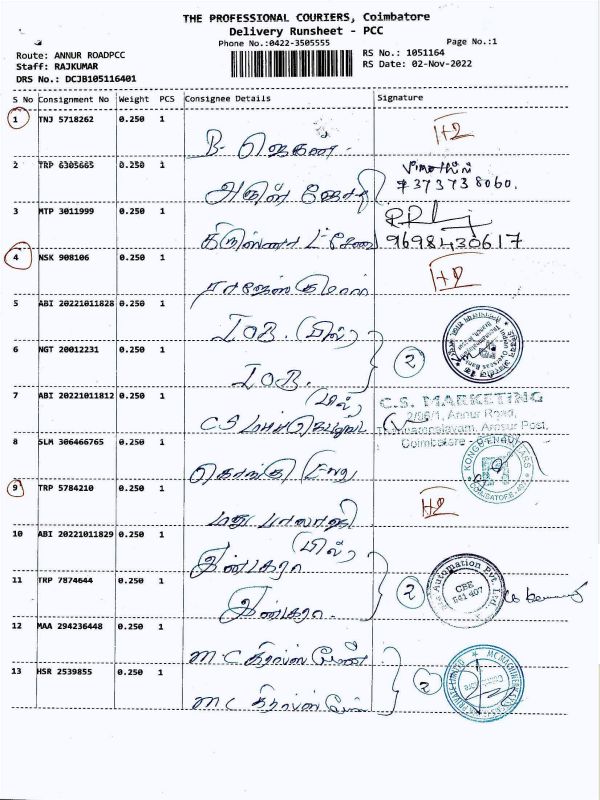 THE PROFESSIONAL COURIERS, Coimbatore
Delivery Runsheet - PCC
Phone No.:0422-3505555
Page No.:1
Route: ANNUR ROADPCC
RS No.: 1051164
Staff: RAJKUMAR
RS Date: 02-Nov-2022
DRS No.: DCJB105116401
S No Consignment No Weight PCS Consignee Details Signature
1 TNJ 5718262 0.250 1
H2
B. ஜெகன்
2 TRP 6305665 0.250 1
அருள் ஜோதி
3 MTP 3011999 0.250 1
9698430617
4 NSK 908106 0.250 1
H2
ராஜேஸ்குமார்
5 ABI 20221011828 0.250 1
IOB. (பில்)
6 NGT 20012231 0.250 1
2
IOB.
7 ABI 20221011812 0.250 1
(பில்)
C.S. MARKETING
2/96/1, Annur Road,
Arasur Post,
Coimbatore -
C.S மார்க்கெட்டிங்
8 SLM 306466765 0.250 1
கொங்கு Eng
9 TRP 5784210 0.250 1
H2
மது பாலாஜி
10 ABI 20221011829 0.250 1
(பில்)
11 TRP 7874644 0.250 1
2
Automation Pvt. Ltd.
CBE
641 407
12 MAA 294236448 0.250 1
MC
13 HSR 2539855 0.250 1
2
MC